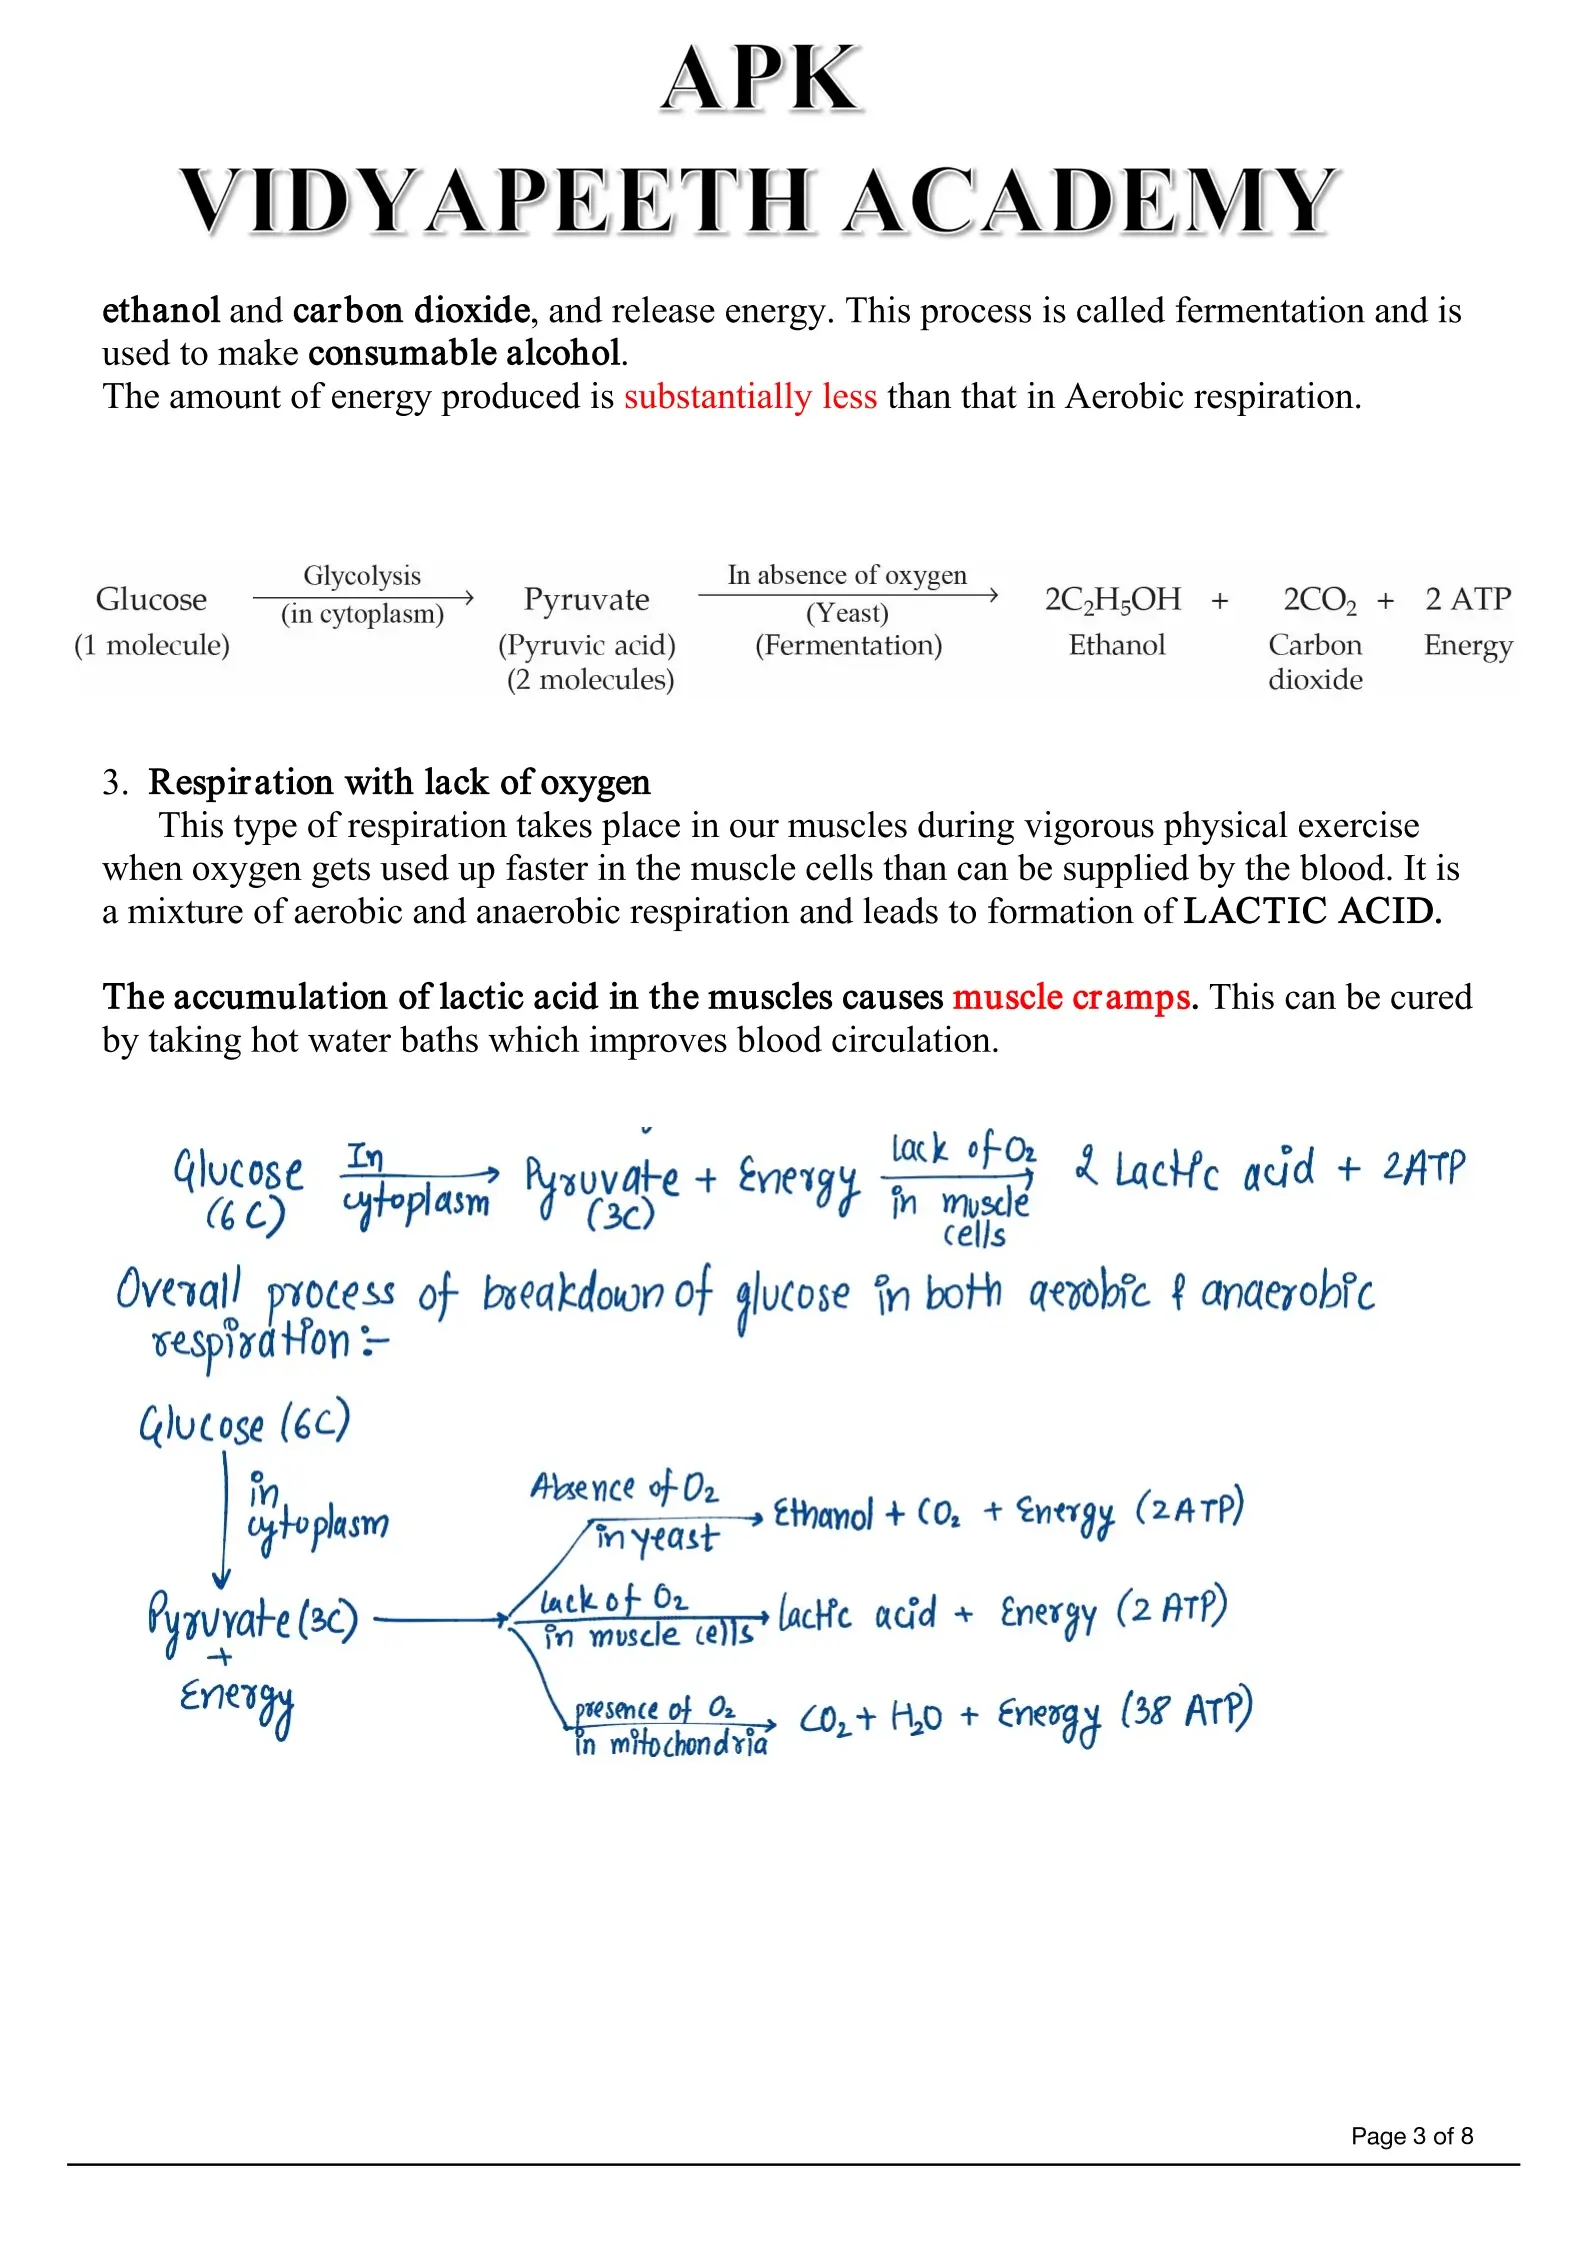 APK
VIDYAPEETH ACADEMY
ethanol and carbon dioxide, and release energy. This process is called fermentation and is
used to make consumable alcohol.
The amount of energy produced is substantially less than that in Aerobic respiration.
Glucose Glycolysis Pyruvate In absence of oxygen 2C₂H₅OH + 2CO₂ + 2 ATP
(1 molecule) (in cytoplasm) (Pyruvic acid) (Yeast) Ethanol Carbon Energy
(2 molecules) (Fermentation) dioxide
3. Respiration with lack of oxygen
This type of respiration takes place in our muscles during vigorous physical exercise
when oxygen gets used up faster in the muscle cells than can be supplied by the blood. It is
a mixture of aerobic and anaerobic respiration and leads to formation of LACTIC ACID.
The accumulation of lactic acid in the muscles causes muscle cramps. This can be cured
by taking hot water baths which improves blood circulation.
Glucose In Pyruvate + Energy lack of O₂ 2 Lactic acid + 2ATP
(6C) cytoplasm (3C) in muscle
cells
Overall process of breakdown of glucose in both aerobic & anaerobic
respiration :-
Glucose (6C)
in
cytoplasm
Absence of O₂
in yeast → Ethanol + CO₂ + Energy (2 ATP)
Pyruvate (3C) → lack of O₂ → lactic acid + Energy (2 ATP)
in muscle cells
+
Energy
presence of O₂ → CO₂ + H₂O + Energy (38 ATP)
in mitochondria
Page 3 of 8